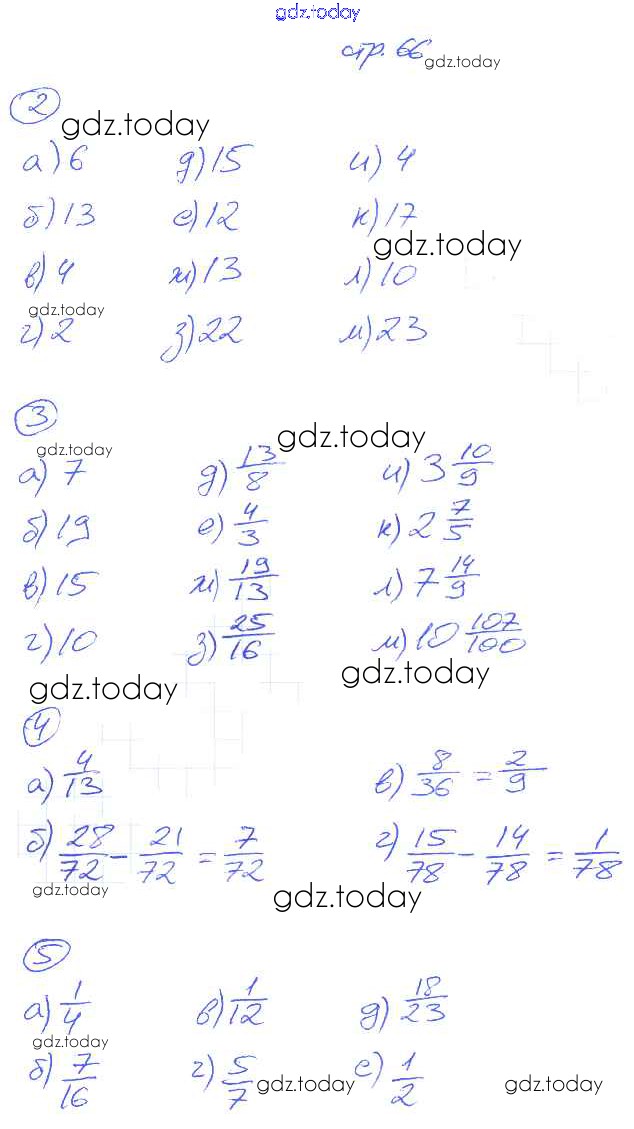 gdz.today
стр. 66 gdz.today
2
gdz.today
а) 6 д) 15 и) 4
б) 13 е) 12 к) 17
gdz.today
в) 4 ж) 13 л) 10
gdz.today
г) 2 з) 22 м) 23
3
gdz.today gdz.today
а) 7 д) 13/8 и) 3 10/9
б) 19 е) 4/3 к) 2 7/5
в) 15 ж) 19/13 л) 7 14/9
г) 10 з) 25/16 м) 10 107/100
gdz.today gdz.today
4
а) 4/13 в) 8/36 = 2/9
б) 28/72 - 21/72 = 7/72 г) 15/78 - 14/78 = 1/78
gdz.today gdz.today
5
а) 1/4 в) 1/12 д) 18/23
gdz.today
б) 7/16 г) 5/7 gdz.today е) 1/2 gdz.today